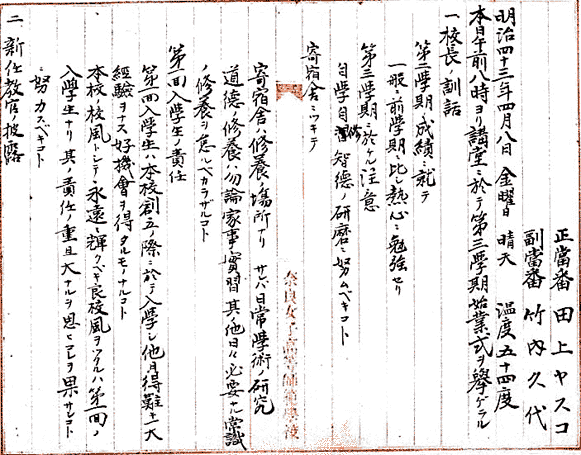 正當番 田上ヤスコ
副當番 竹内久代
明治四十三年四月八日 金曜日 晴天 温度五十四度
本日午前八時ヨリ講堂ニ於テ第三學期始業式ヲ擧ゲラル
一 校長ノ訓話
第二學期ノ成績ニ就テ
一般ニ前學期ニ比シ熱心ニ勉強セリ
第三學期ニ於ケル注意
自學自修智德ノ研磨ニ努ムベキコト
寄宿舎ニツキテ
寄宿舎ハ修養ノ場所ナリ サレバ日常學術ノ研究
道德ノ修養ハ勿論家事ノ實習其ノ他日々必要ナル常識
ノ修養ヲ怠ルベカラザルコト
第一回入學生ノ責任
第一回入學生ハ本校創立ノ際ニ於テ入學シ他日得難キ一大
經験ヲナス好機會ヲ得タルモノナルコト
本校ノ校風トシテ永遠ニ輝クベキ良校風ヲツクルハ第一回ノ
入學生ナリ 其ノ責任ノ重且大ナルヲ思ヒコレヲ果サンコト
ニ努力スベキコト
二 新任教官ノ披露
奈良女子高等師範學校